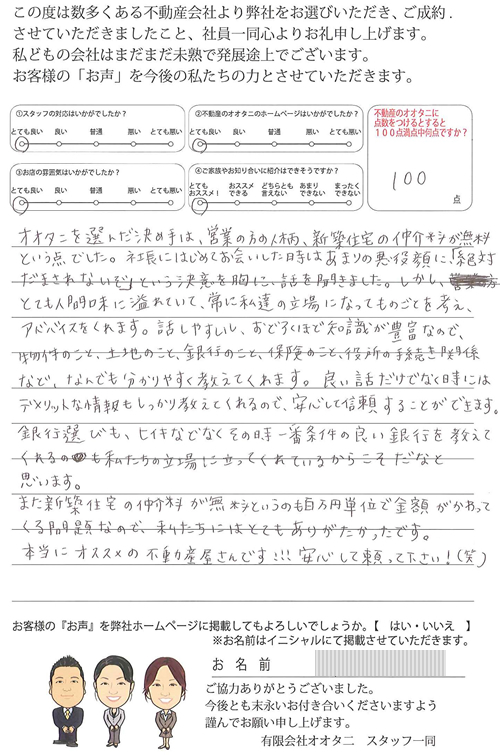 この度は数多くある不動産会社より弊社をお選びいただき、ご成約.
させていただきましたこと、社員一同心よりお礼申し上げます。
私どもの会社はまだまだ未熟で発展途上でございます。
お客様の「お声」を今後の私たちの力とさせていただきます。
①スタッフの対応はいかがでしたか?
とても良い 良い 普通 悪い とても悪い
②不動産のオオタニのホームページはいかがでしたか?
とても良い 良い 普通 悪い とても悪い
③お店の雰囲気はいかがでしたか?
とても良い 良い 普通 悪い とても悪い
④ご家族やお知り合いに紹介はできそうですか?
とても オススメ どちらとも あまり まったく
オススメ! できる 言えない できない できない
不動産のオオタニに
点数をつけるとすると
100点満点中何点ですか?
100
点
オオタニを選んだ決め手は、営業の方の人柄、新築住宅の仲介料が無料
という点でした。社長にはじめてお会いした時はあまりの悪役顔に、「絶対
だまされないぞ」という決意を胸に、話を聞きました。しかし、
とても人間味に溢れていて、常に私達の立場になってものごとを考え、
アドバイスをくれます。話しやすいし、おどろくほど知識が豊富なので、
物件のこと、土地のこと、銀行のこと、保険のこと、役所の手続き関係
など、なんでも分かりやすく教えてくれます。良い話だけでなく時には
デメリットな情報もしっかり教えてくれるので、安心して信頼することができます。
銀行選びも、ヒイキなどでなくその時一番条件の良い銀行を教えて
くれるのも私たちの立場に立ってくれているからこそだなと
思います。
また新築住宅の仲介料が無料というのも百万円単位で金額がかわって
くる問題なので、私たちにはとてもありがたかったです。
本当にオススメの不動産屋さんです!!!安心して頼って下さい!(笑)
お客様の『お声』を弊社ホームページに掲載してもよろしいでしょうか。【 はい・いいえ 】
※お名前はイニシャルにて掲載させていただきます。
お 名 前
ご協力ありがとうございました。
今後とも末永いお付き合いくださいますよう
謹んでお願い申し上げます。
有限会社オオタニ スタッフ一同